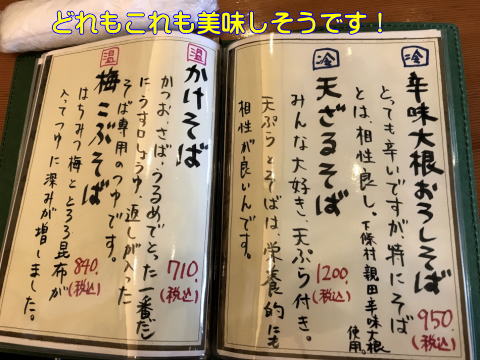 どれもこれも美味しそうです！
冷
辛味大根おろしそば
とっても辛いですが特にそば
とは、相性良し。下條村親田辛味大根使用。
950
(税込)
冷
天ざるそば
みんな大好き、天ぷら付き。
1200
(税込)
天ぷらとそばは、栄養的にも
相性が良いんです。
温
かけそば
かつお、さば、うるめでとった一番だし
にうす口しょうゆ、返しが入った
そば専用のつゆです。
710
(税込)
温
梅こぶそば
はちみつ梅ととろろ昆布が
入ってつゆに深みが増しました。
840
(税込)